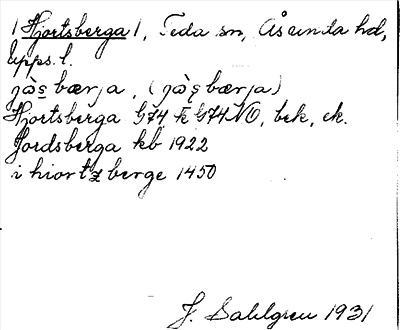 1 Hjortsberga 1, Teda sn, Åsunda hd,
Upps. l.
jò̀s̱bærja, (jò̀ş̱bærja)
Hjortsberga G74 k G74NO, bek, ek.
Jordsberga kb 1922
i hiortzberge 1450
J. Sahlgren 1931